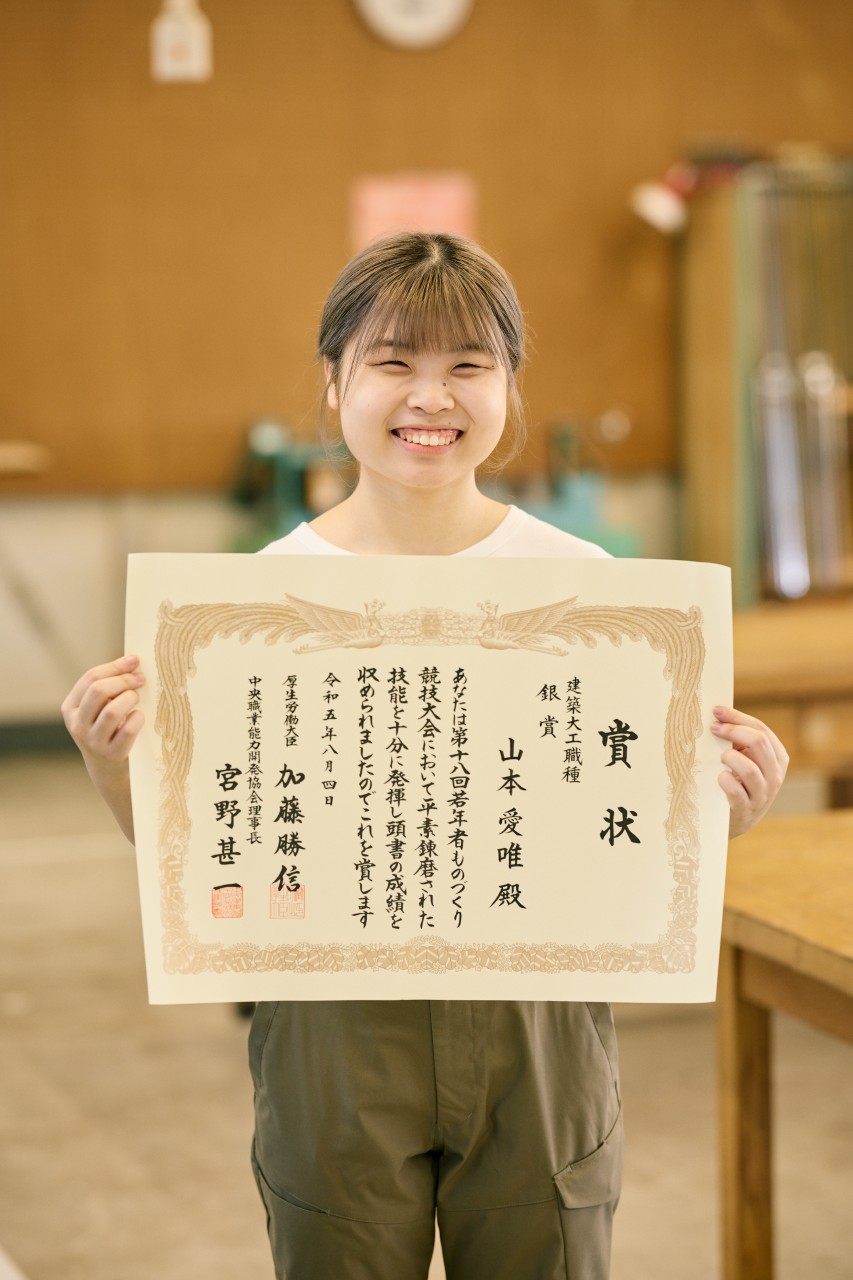 賞状
建築大工職種
銀賞
山本愛唯殿
あなたは第十八回若年者ものづくり
競技大会において平素錬磨された
技能を十分に発揮し頭書の成績を
収められましたのでこれを賞します
令和五年八月四日
厚生労働大臣 加藤勝信
中央職業能力開発協会理事長
宮野甚一